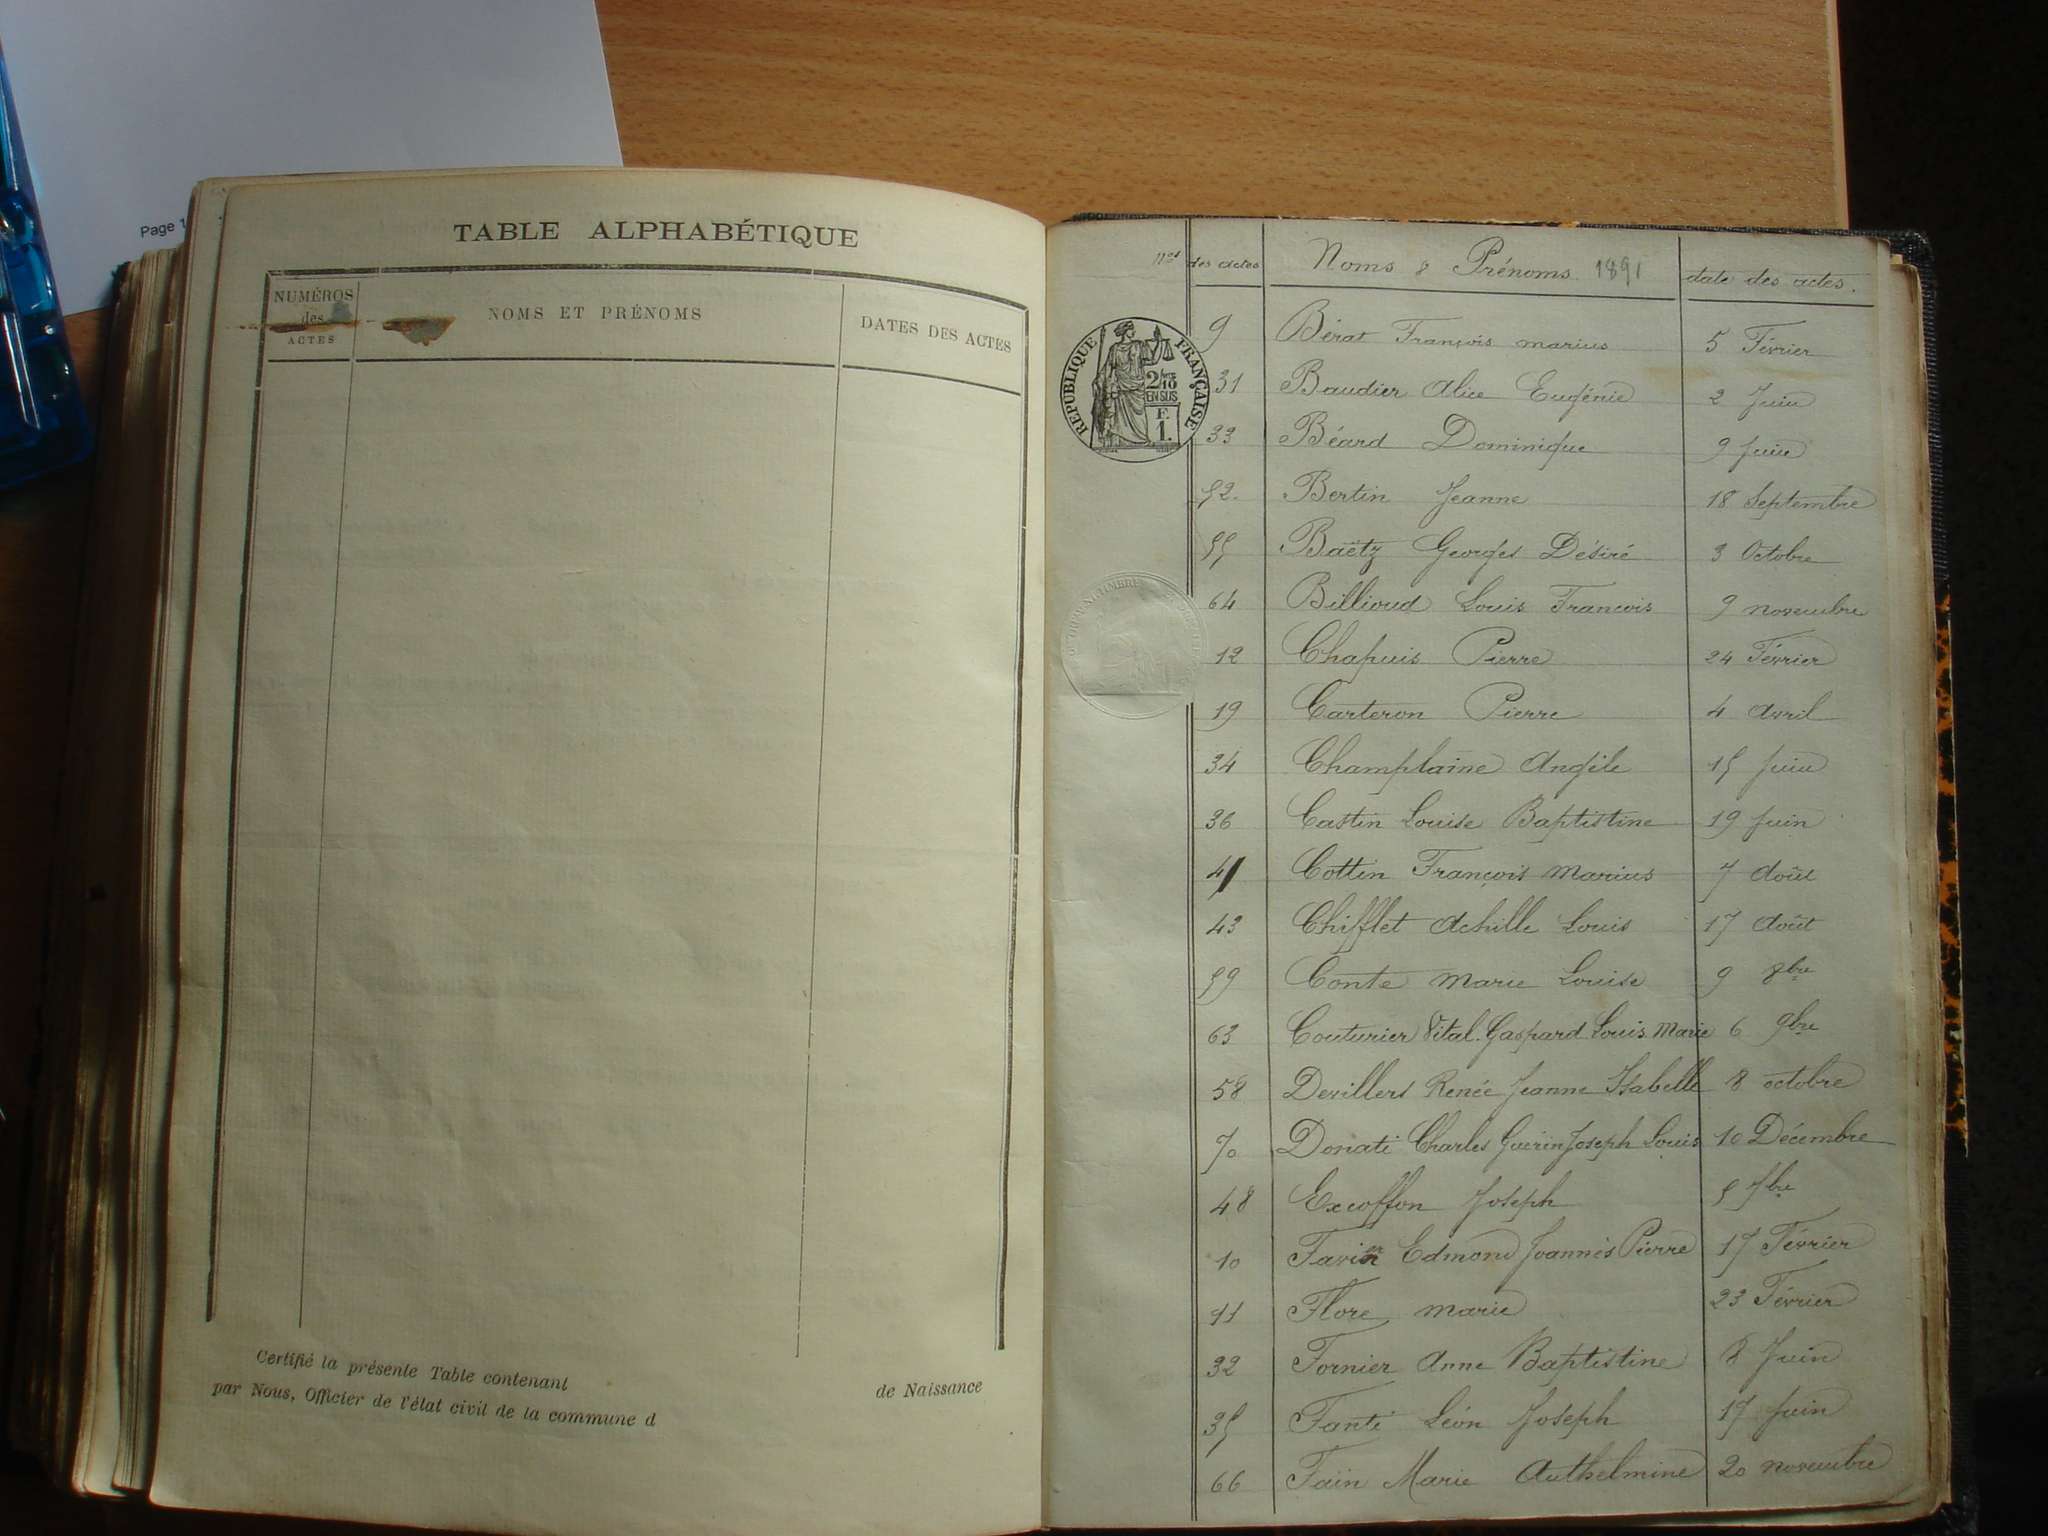 Page 1
TABLE ALPHABÉTIQUE
NUMÉROS
des
ACTES
NOMS ET PRÉNOMS
DATES DES ACTES
Certifié la présente Table contenant de Naissance
par Nous, Officier de l'état civil de la commune d
nos des actes Noms & Prénoms 1891 date des actes.
RÉPUBLIQUE FRANÇAISE
2/10
EN SUS
F.
1.
9 Bérat François marius 5 Février
31 Baudier Alice Eugénie 2 Juin
33 Béard Dominique 9 Juin
52. Bertin Jeanne 18 Septembre
55 Baëtz Georges Désiré 3 Octobre
64 Billioud Louis François 9 novembre
12 Chapuis Pierre 24 Février
19 Carteron Pierre 4 Avril
34 Champlaine Angèle 15 Juin
36 Castin Louise Baptistine 19 Juin
41 Cottin François Marius 7 Août
43 Chifflet Achille Louis 17 Août
59 Conte Marie Louise 9 8bre
63 Couturier Vital. Gaspard Louis Marie 6 9bre
58 Devillers Renée Jeanne Isabelle 8 octobre
70 Donati Charles Guérin Joseph Louis 10 Décembre
48 Excoffon Joseph 5 7bre
10 Favier Edmond Joannès Pierre 17 Février
11 Flore marie 23 Février
32 Fornier Anne Baptistine 8 Juin
35 Fanti Léon Joseph 17 Juin
66 Fain Marie Anthelmine 20 novembre